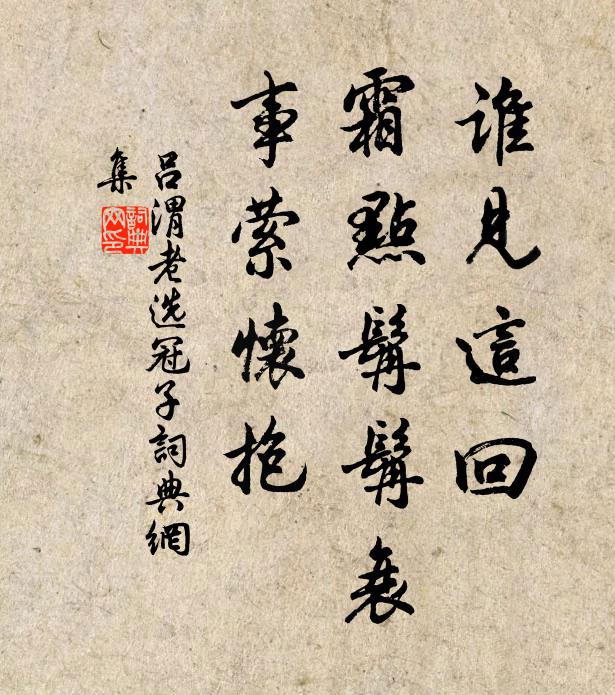 誰見這回
霜點鬅鬅衰
事萦懷抱
吕渭老选冠子詞典網
集
詞典
网印